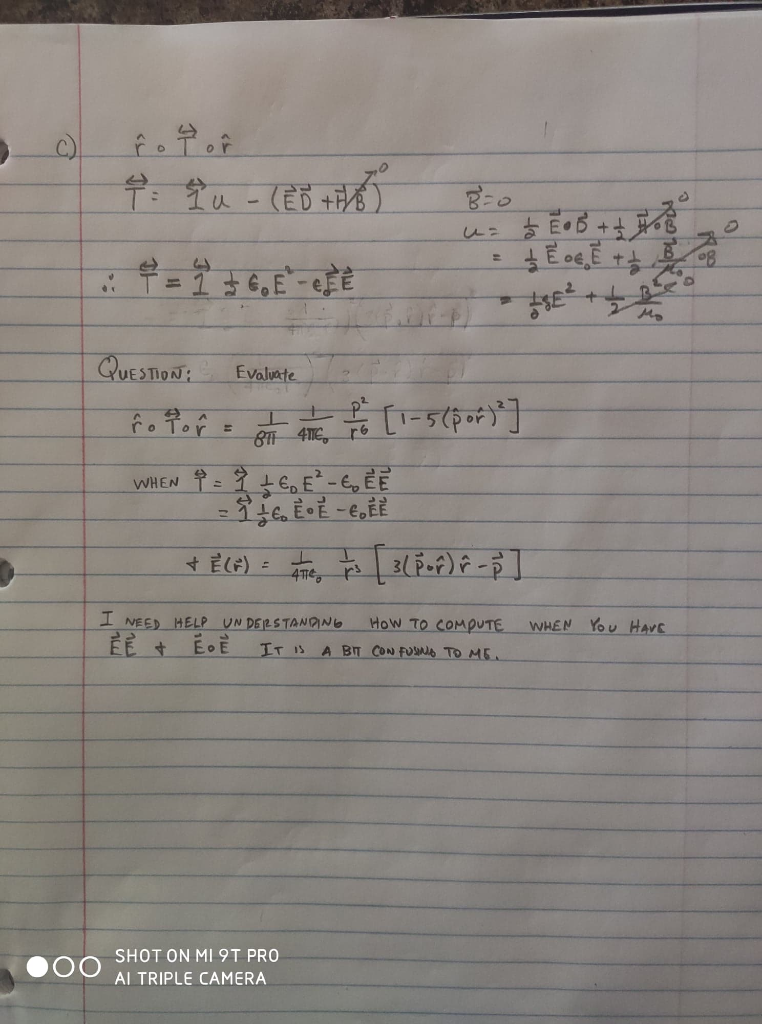 c) r̂ ∘ T⃡ ∘ r̂
T⃡ = 1⃡ u - (E⃗D⃗ + H⃗B⃗) → 0
B⃗ = 0
u = ½ E⃗∘D⃗ + ½ H⃗∘B⃗ → 0
= ½ E⃗∘ε₀E⃗ + ½ B⃗/μ₀ ∘B → 0
∴ T⃡ = 1⃡ ½ ε₀E² - ε₀E⃗E⃗
= ½ε₀E² + ½ B²/μ₀ → 0
QUESTION: Evaluate
r̂ ∘ T⃡ ∘ r̂ = 1/8π 1/4πε₀ p²/r⁶ [1-5(p̂∘r̂)²]
WHEN T⃡ = 1⃡ ½ ε₀E² - ε₀E⃗E⃗
= 1⃡ ½ε₀ E⃗∘E⃗ - ε₀E⃗E⃗
+ E⃗(r⃗) = 1/4πε₀ 1/r³ [3(p⃗∘r̂)r̂ - p⃗]
I NEED HELP UNDERSTANDING HOW TO COMPUTE WHEN YOU HAVE
E⃗E⃗ + E⃗∘E⃗ IT IS A BIT CONFUSING TO ME.
SHOT ON MI 9T PRO
AI TRIPLE CAMERA